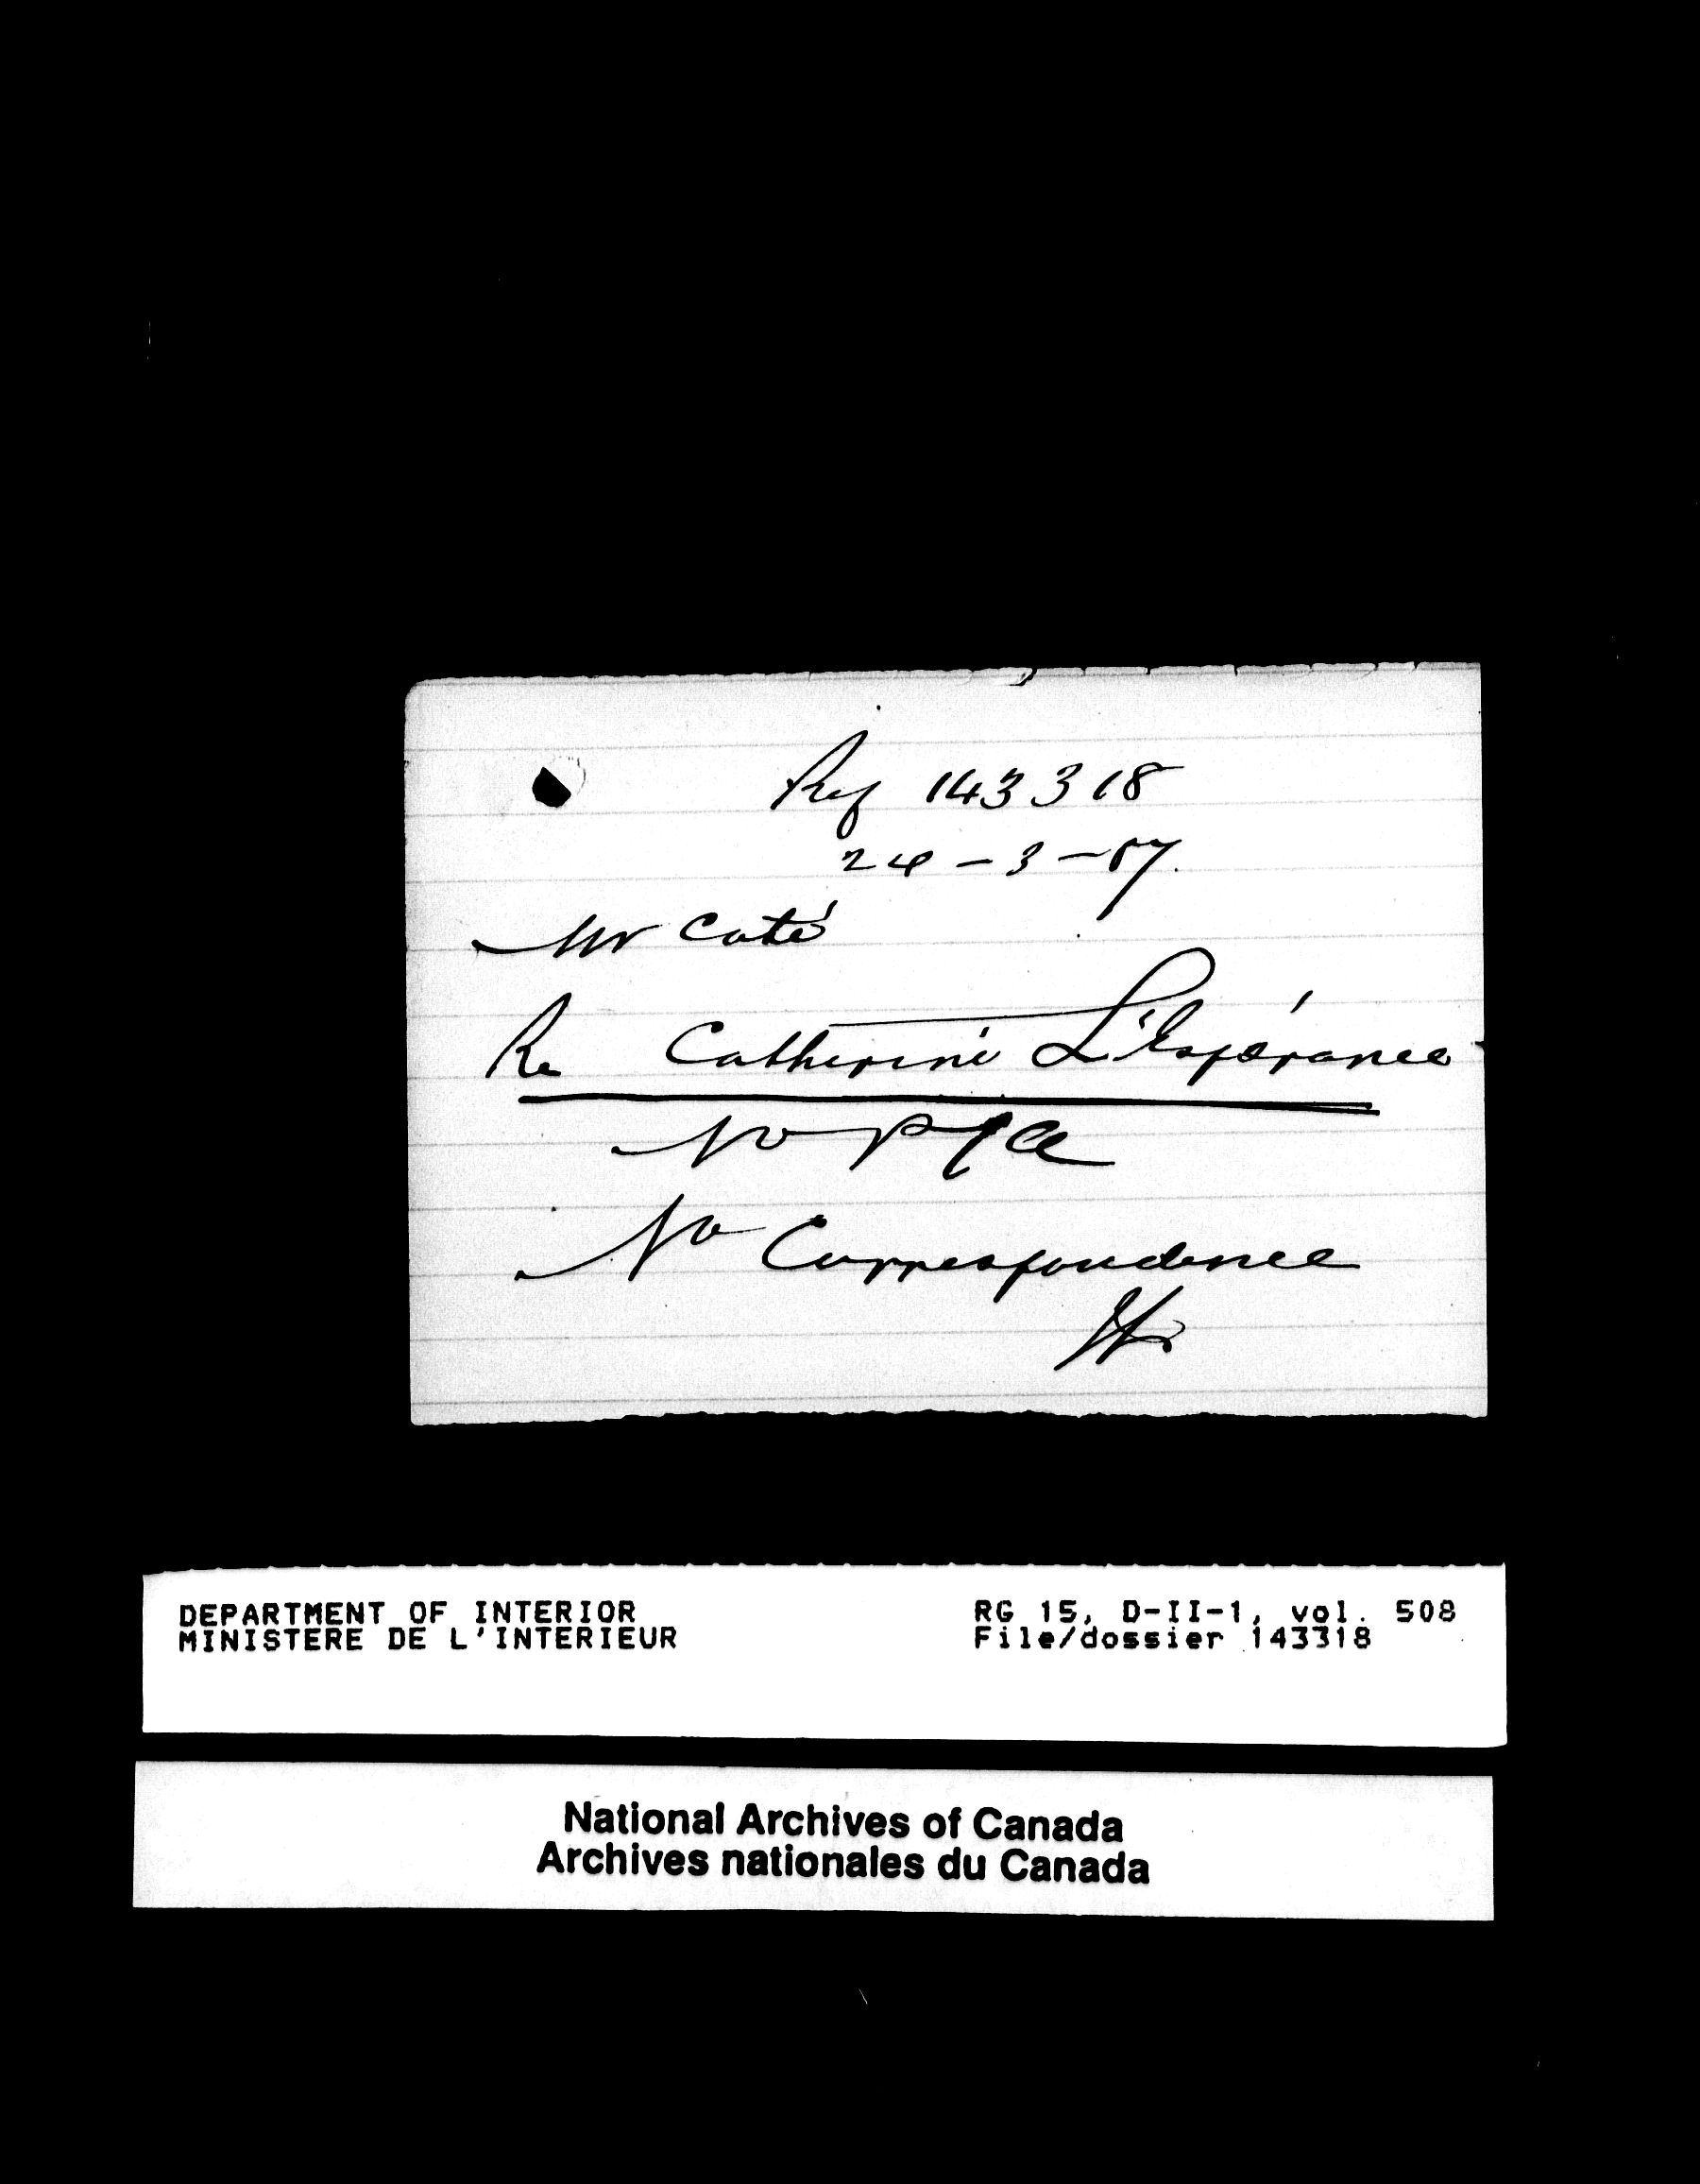 Ref 143318
24-3-87.
Mr Coté
Re Catherine L'Espérance
No
No Correspondence
DEPARTMENT OF INTERIOR
MINISTERE DE L'INTERIEUR
RG 15, D-II-1, vol. 508
File/dossier 143318
National Archives of Canada
Archives nationales du Canada